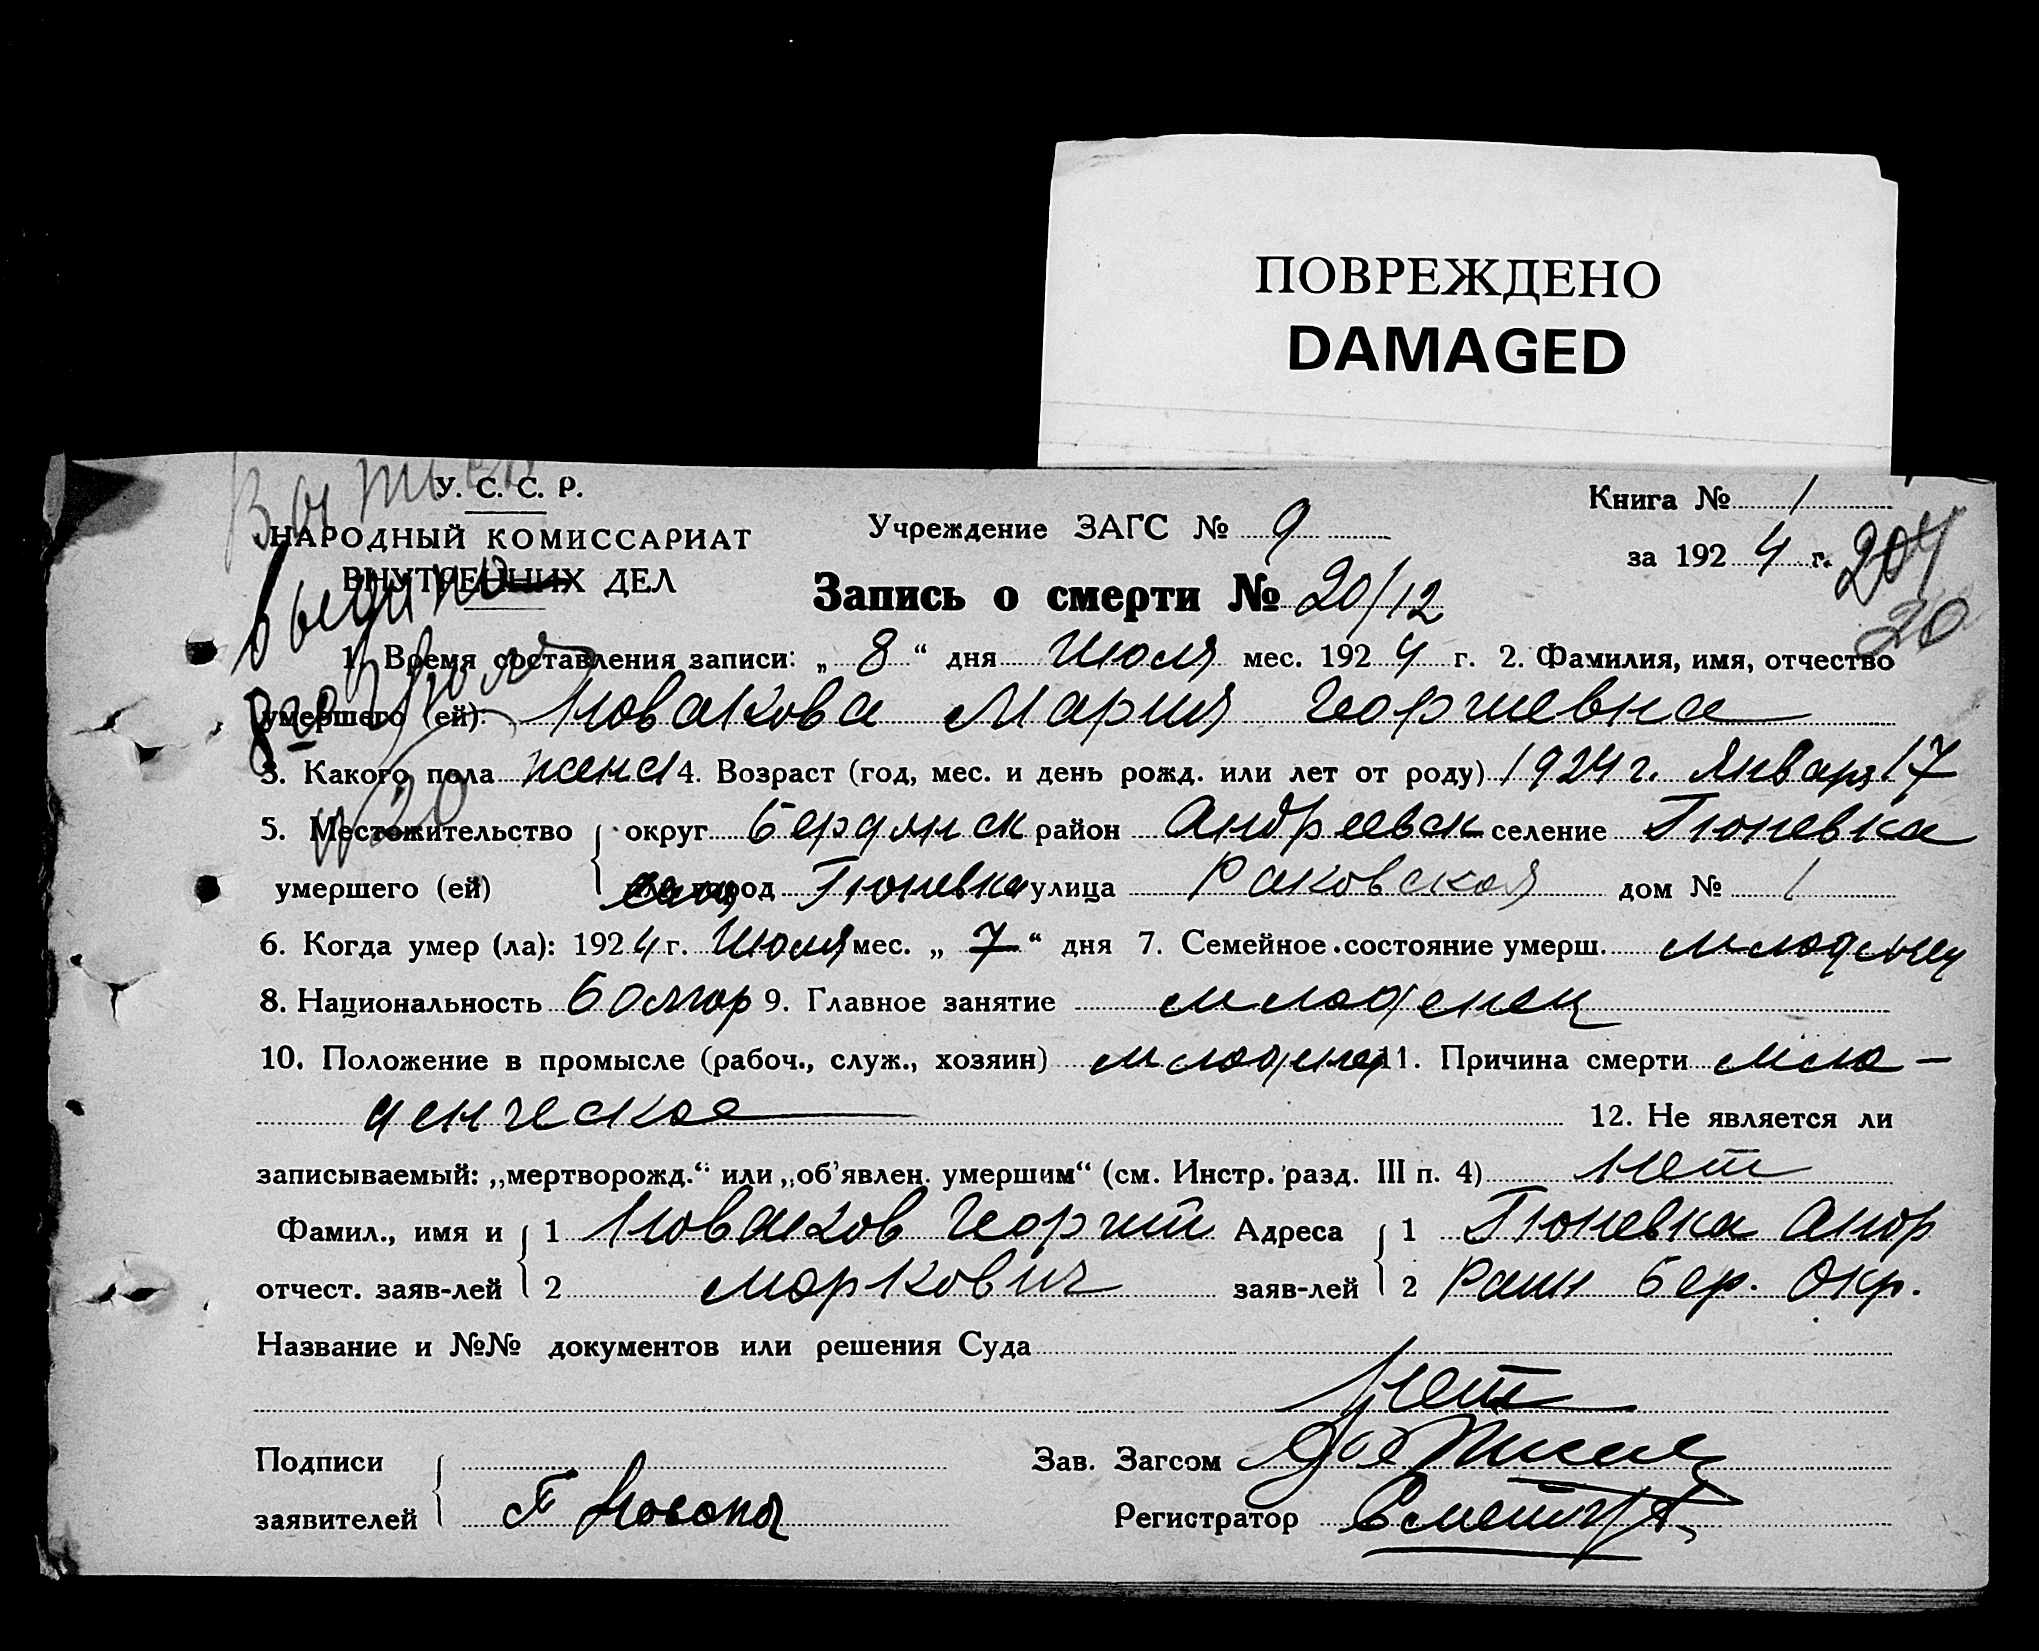 ПОВРЕЖДЕНО
DAMAGED
У. С. С. Р.
НАРОДНЫЙ КОМИССАРИАТ
ВНУТРЕННИХ ДЕЛ
Учреждение ЗАГС № 9
Книга № 1
за 1924 г.
204
20
Запись о смерти № 20/12
1. Время составления записи: „ 8 “ дня Июля мес. 1924 г. 2. Фамилия, имя, отчество
умершего (ей): Новакова Мария Георгиевна
3. Какого пола женс 4. Возраст (год, мес. и день рожд. или лет от роду) 1924 г. Января 17
5. Местожительство округ Бердянск район Андреевск селение Гюневка
умершего (ей) город Гюневка улица Раковская дом № 1
6. Когда умер (ла): 1924 г. Июля мес. „ 7 “ дня 7. Семейное состояние умерш. младенец
8. Национальность Болгар 9. Главное занятие младенец
10. Положение в промысле (рабоч., служ., хозяин) младенец 11. Причина смерти мла-
денческая 12. Не является ли
записываемый: „мертворожд.“ или „об'явлен. умершим“ (см. Инстр. разд. III п. 4) нет
Фамил., имя и 1 Новаков Георгий Адреса 1 Гюневка Андр
отчест. заяв-лей 2 Маркович заяв-лей 2 Район Бер. Окр.
Название и №№ документов или решения Суда
нет
Подписи Зав. Загсом
заявителей Г Новаков Регистратор